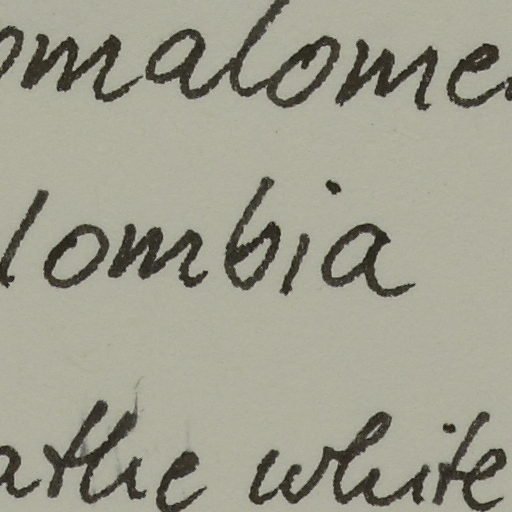 omalome
lombia
athe white